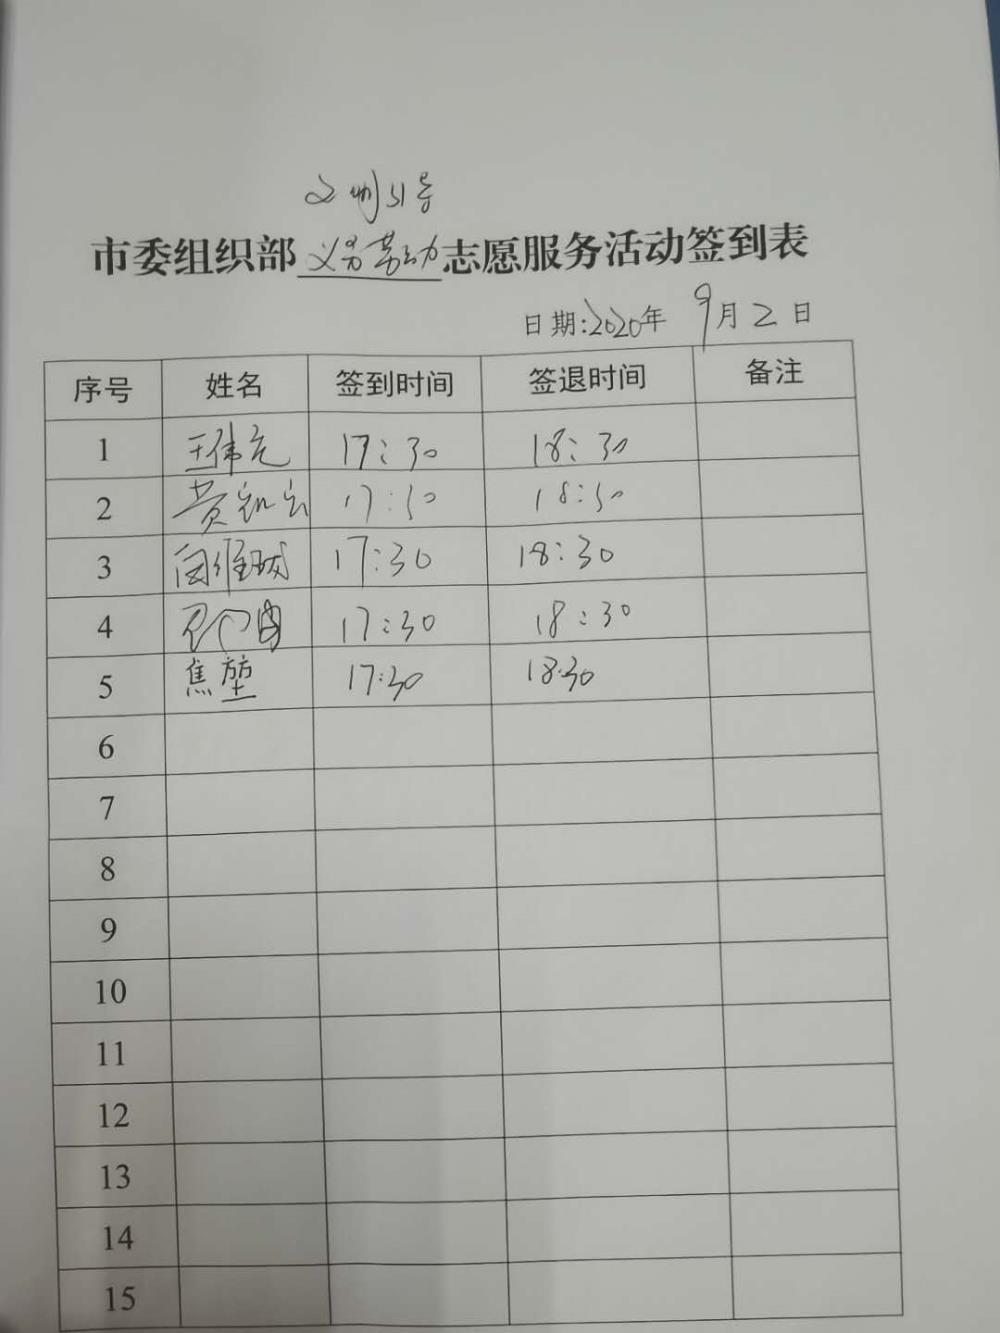 号
市委组织部义务劳动志愿服务活动签到表
日期:2020年 9月2日
序号 姓名 签到时间 签退时间 备注
1 王伟元 17:30 18:30
2 黄 17:30 18:30
3 17:30 18:30
4 17:30 18:30
5 焦堃 17:30 18:30
6
7
8
9
10
11
12
13
14
15